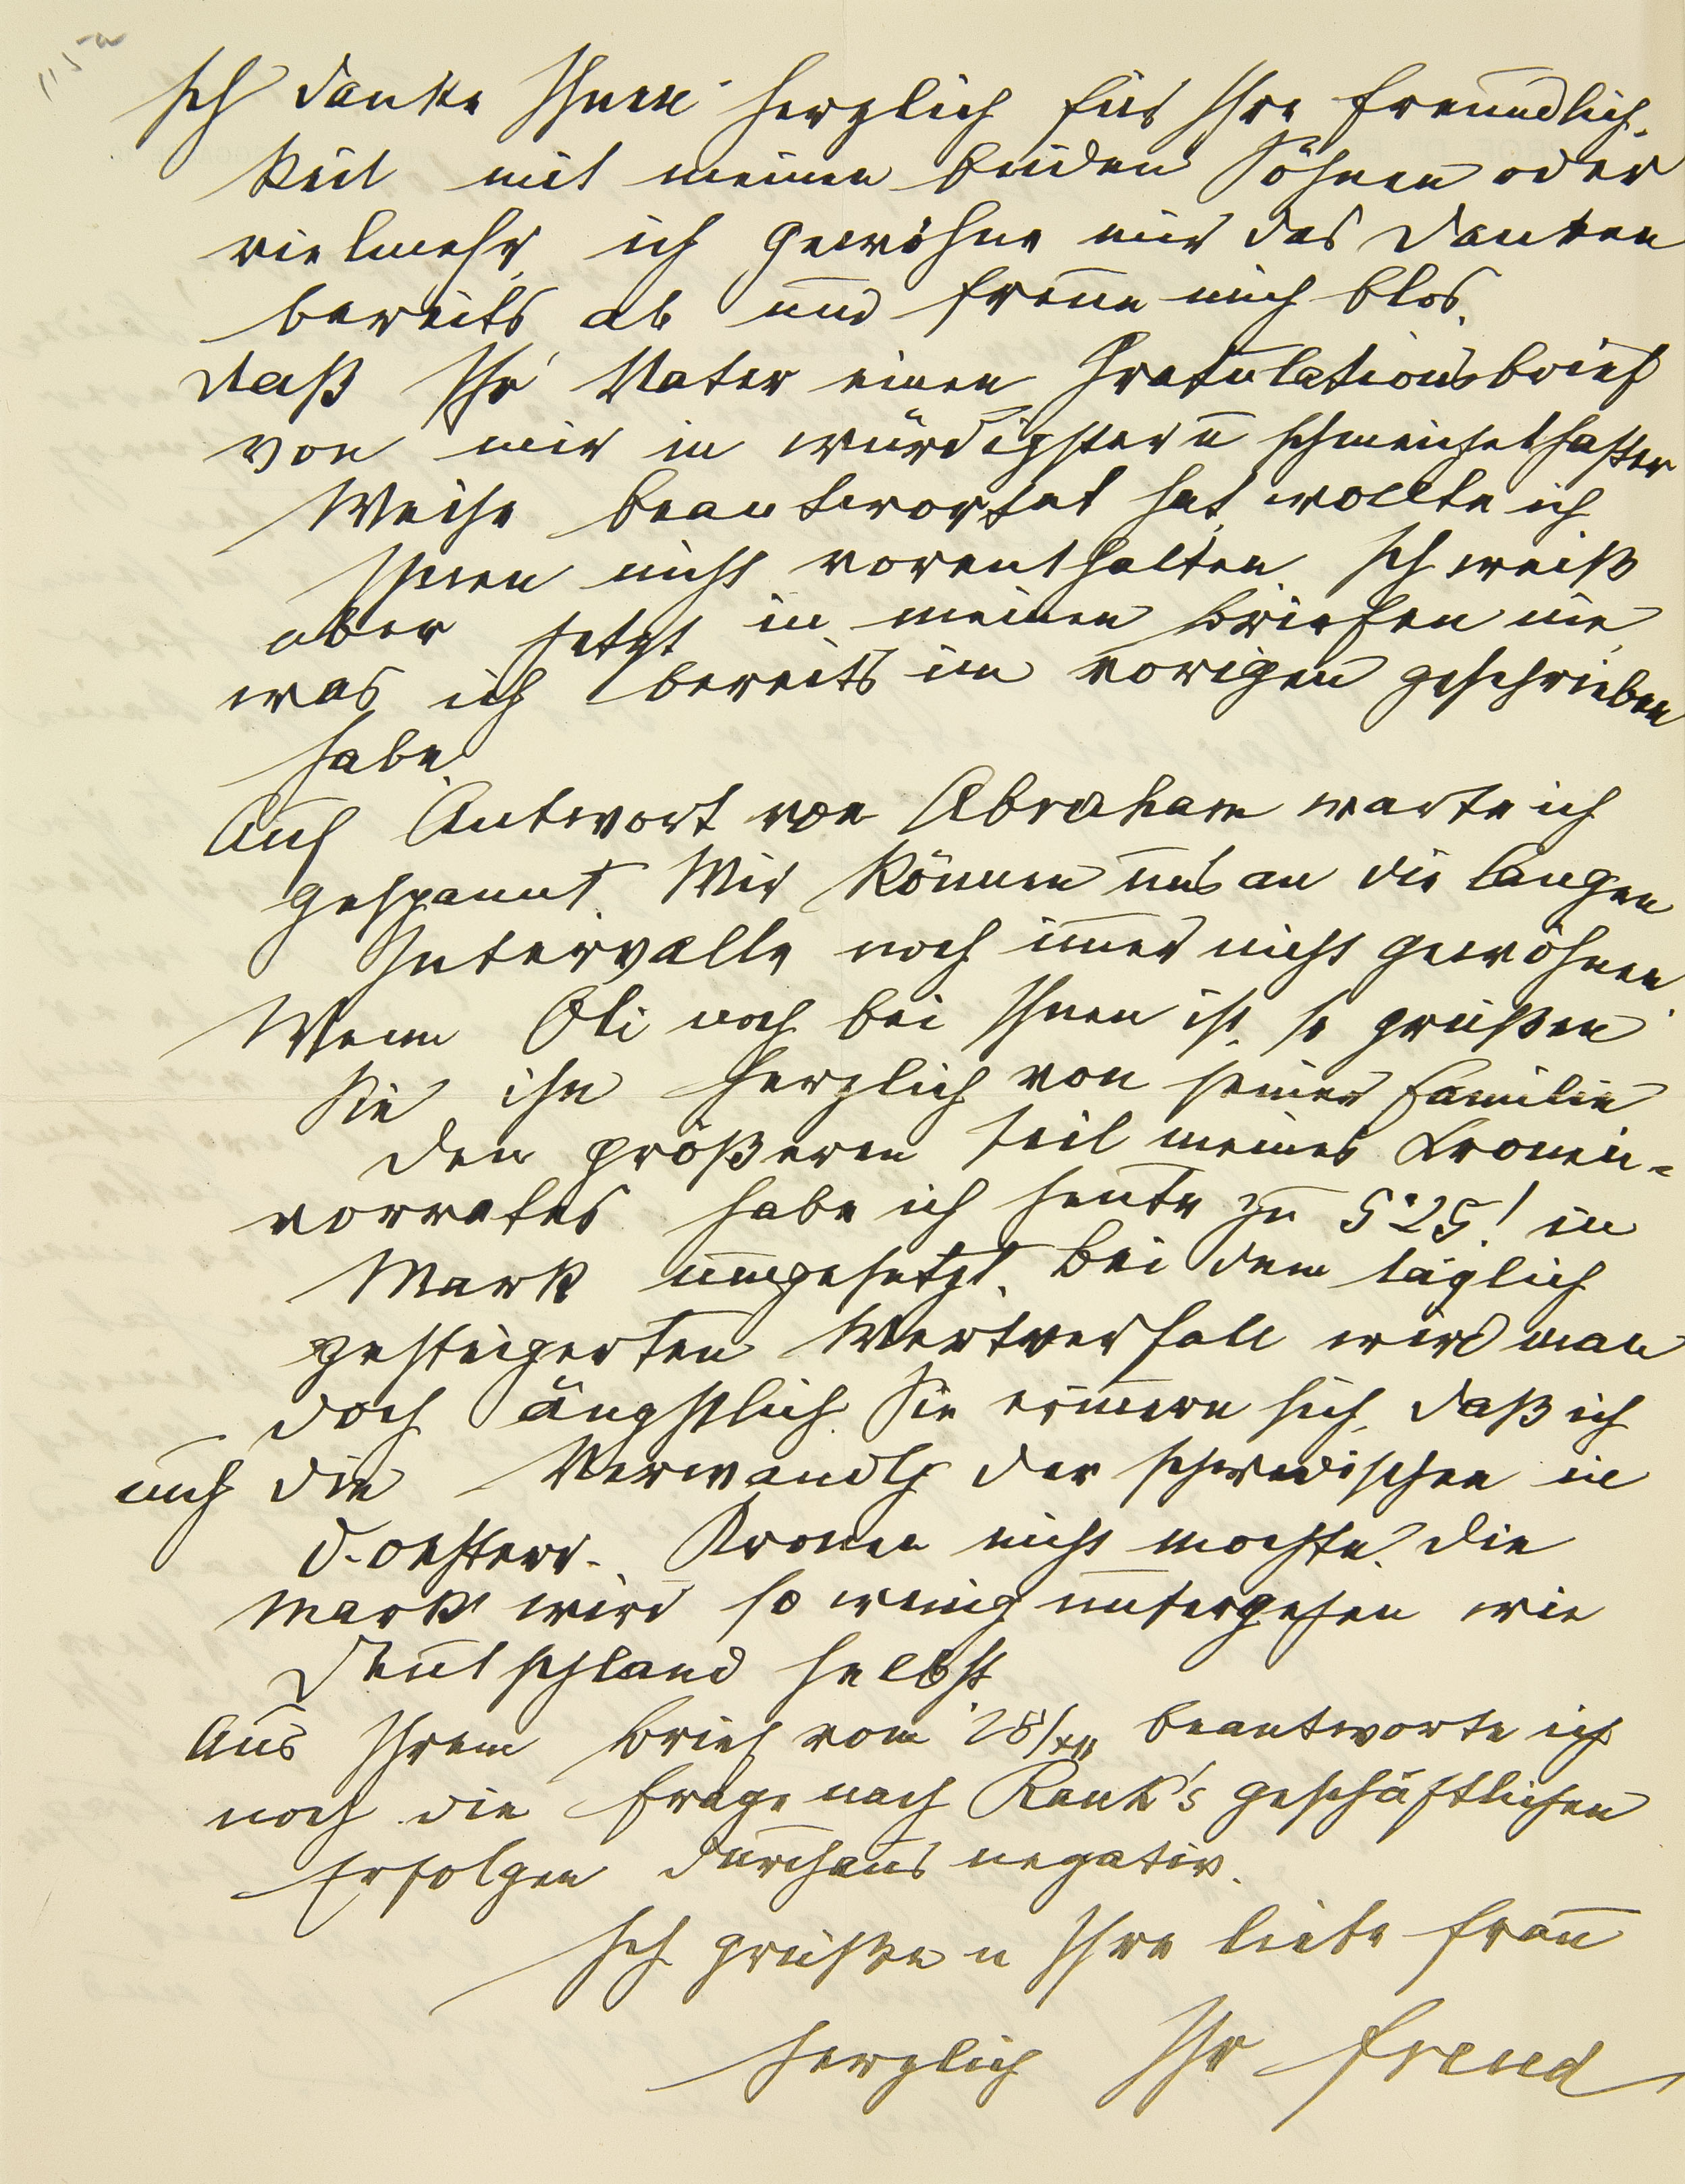 115a
Ich danke Ihnen herzlich für Ihre Freundlich-
keit mit meinen beiden Söhnen oder
vielmehr, ich gewöhne mir das Danken
bereits ab und freue mich blos.
Daß Ihr Vater einen Gratulationsbrief
von mir in würdigster u schmeichelhafter
Weise beantwortet hat, wollte ich
Ihnen nicht vorenthalten. Ich weiß
aber jetzt in meinen Briefen nie,
was ich bereits im vorigen geschrieben
habe.
Auf Antwort von Abraham warte ich
gespannt. Wir können uns an die langen
Intervalle noch immer nicht gewöhnen.
Wenn Oli noch bei Ihnen ist, so grüßen
Sie ihn herzlich von seiner Familie
Den größeren Teil meines Kronen-
vorrates habe ich heute zu 525! in
Mark umgesetzt. Bei dem täglich
gesteigerten Wertverfall wird man
doch ängstlich. Sie erinnern sich, daß ich
auch die Verwandlg der schwedischen in
d. oesterr. Kronen nicht mochte. Die
Mark wird so wenig untergehen wie
Deutschland selbst.
Aus Ihrem Brief vom 28/XII beantworte ich
noch die Frage nach Rank's geschäftlichen
Erfolgen durchaus negativ.
Ich grüße u Ihre liebe Frau
herzlich Ihr Freud